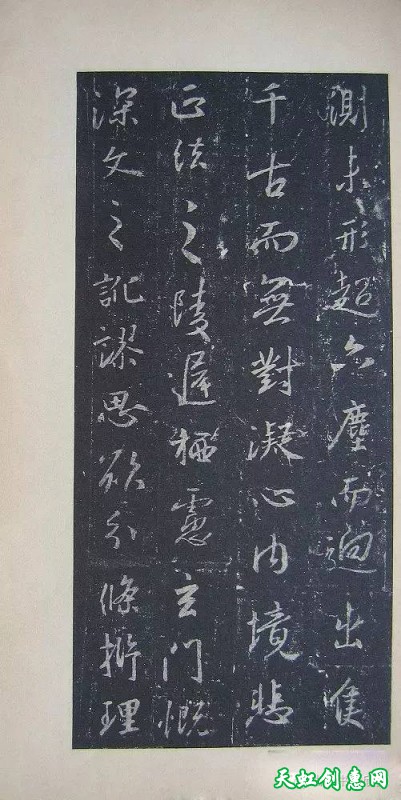 測未形超六塵而迥出隻
千古而無對凝心內境悲
正法之陵遲栖慮玄門慨
深文之訛謬思欲分條析理
天虹创惠网